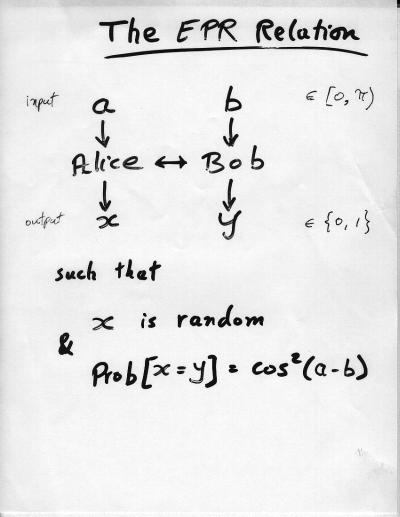 The EPR Relation
input a b ∈ [0, π)
↓ ↓
Alice ↔ Bob
↓ ↓
output x y ∈ {0, 1}
such that
x is random
&
Prob[x = y] = cos²(a-b)